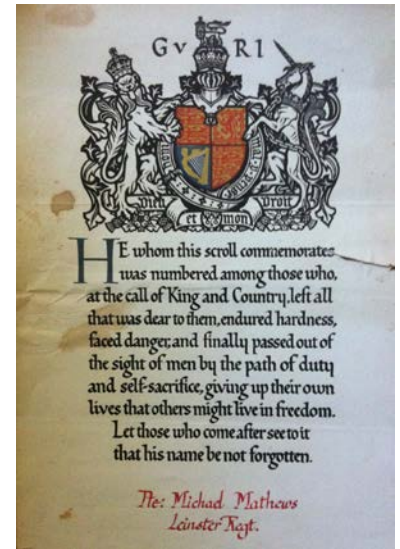 G V R I
Dieu et mon Droit
HE whom this scroll commemorates
was numbered among those who,
at the call of King and Country, left all
that was dear to them, endured hardness,
faced danger, and finally passed out of
the sight of men by the path of duty
and self-sacrifice, giving up their own
lives that others might live in freedom.
Let those who come after see to it
that his name be not forgotten.
Pte: Michael Mathews
Leinster Regt.